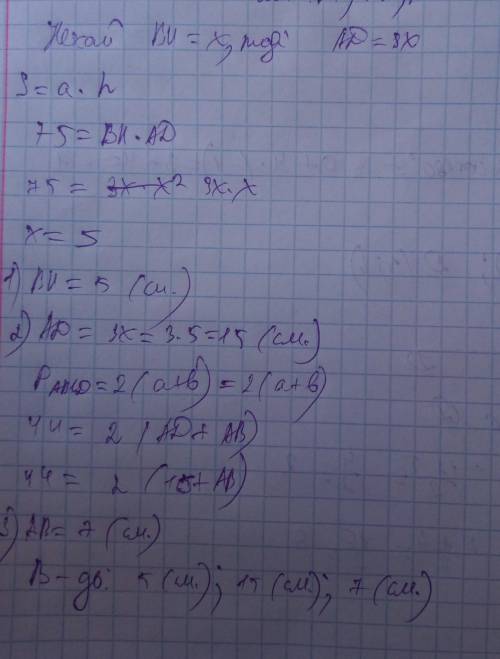 Нехай BH = x, тоді AD = 3x
S = a · h
75 = BH · AD
75 = 3x · x
x = 5
1) BH = 5 (см.)
2) AD = 3x = 3 · 5 = 15 (см.)
P ABCD = 2 (a+b) = 2 (a+b)
44 = 2 (AD + AB)
44 = 2 (15 + AB)
3) AB = 7 (см.)
В-дь: 5 (см.); 15 (см.); 7 (см.)